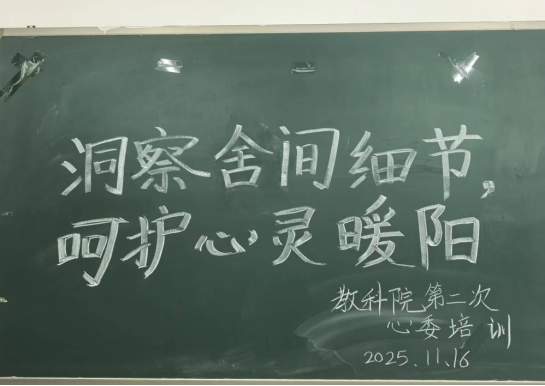 洞察舍间细节,
呵护心灵暖阳
教科院第二次
心委培训
2025.11.16